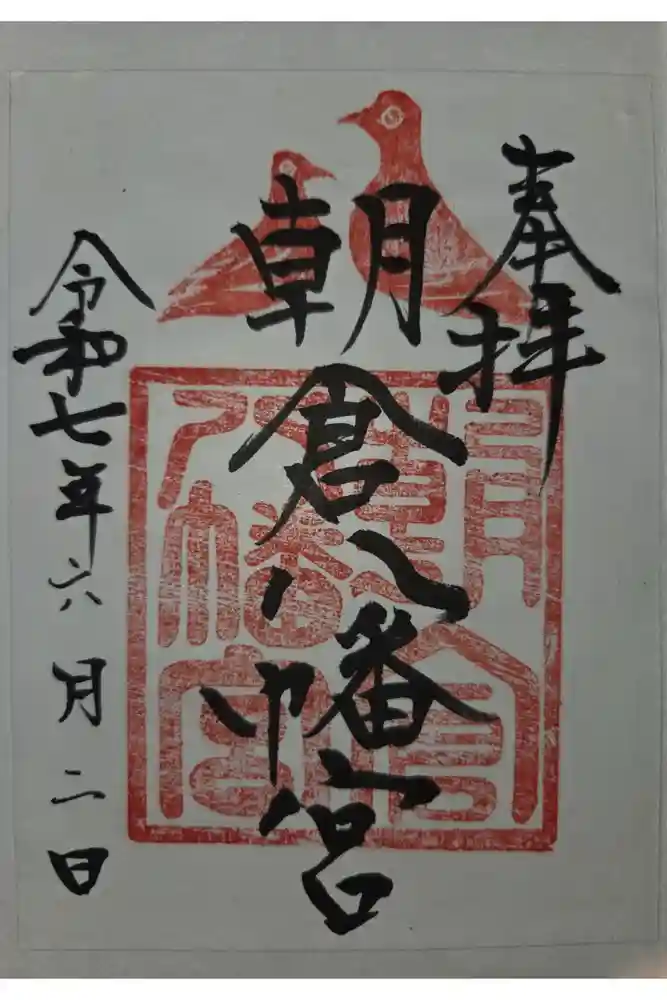 奉拝
朝倉八幡宮
朝倉八幡宮
令和七年六月二日